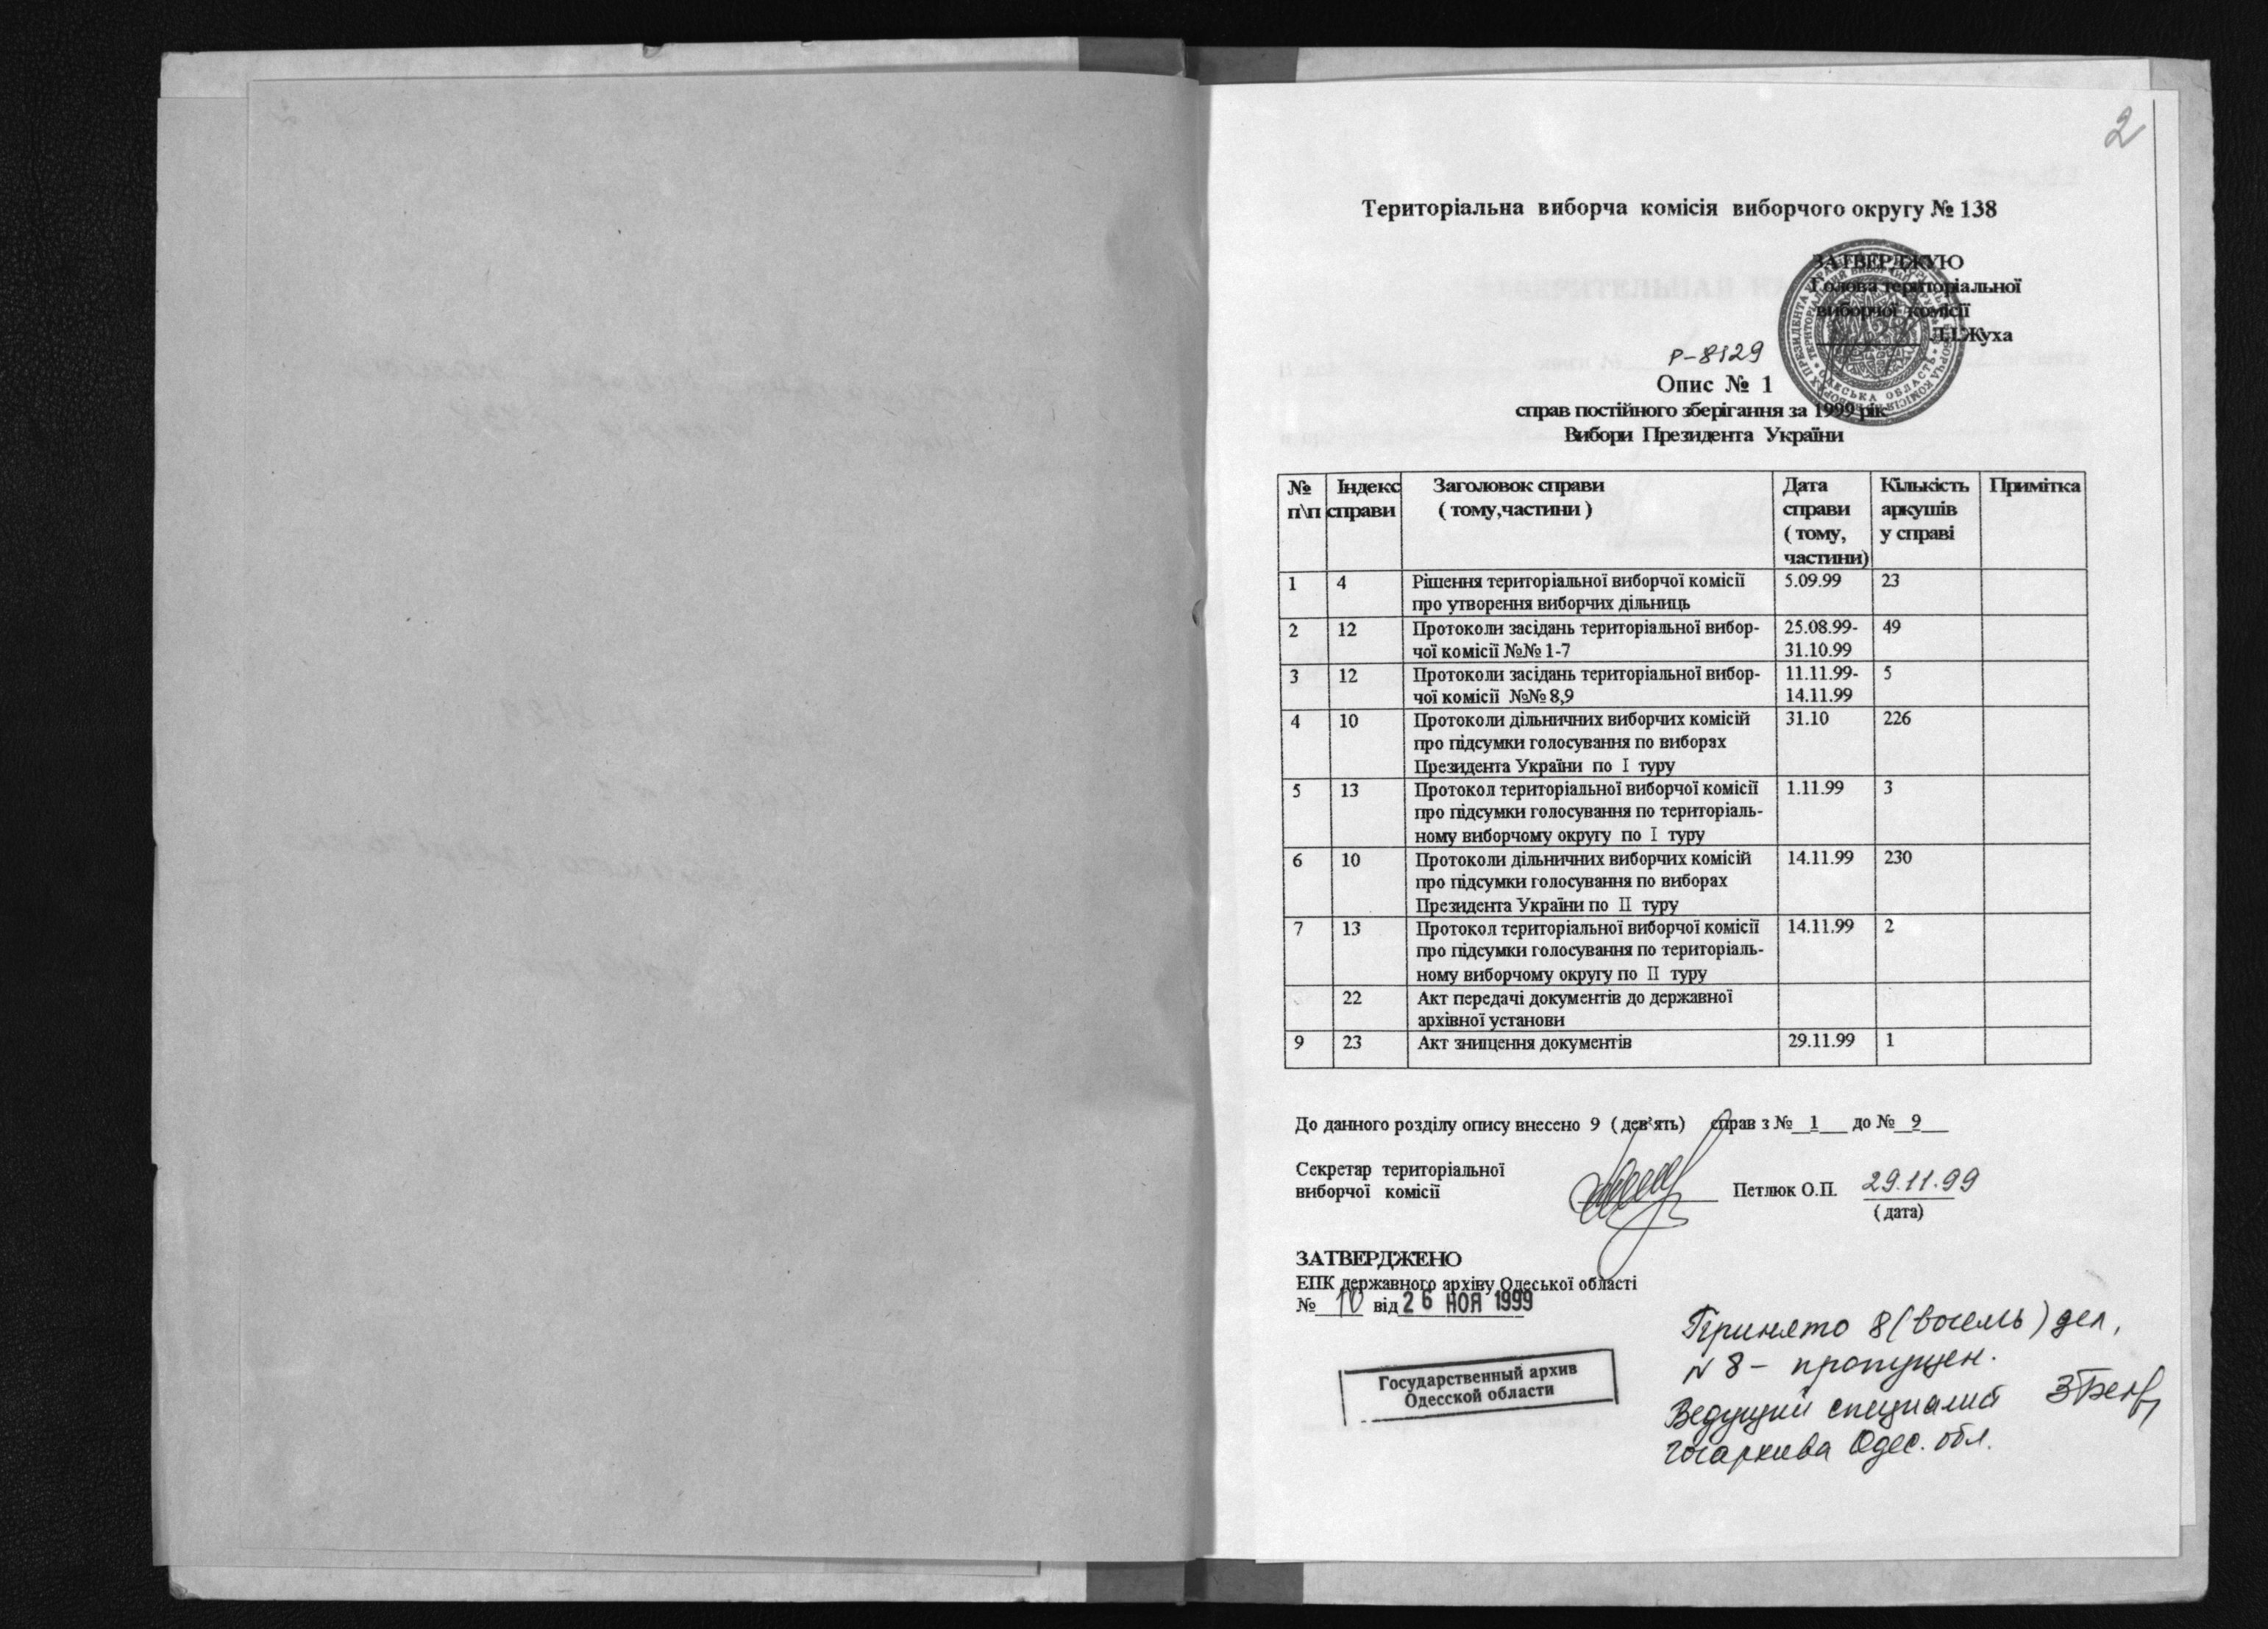 2
Територіальна виборча комісія виборчого округу № 138
ЗАТВЕРДЖУЮ
Голова територіальної
виборчої комісії
Л.І.Жуха
Р-8129
Опис № 1
справ постійного зберігання за 1999 рік
Вибори Президента України
№ п\п Індекс справи Заголовок справи ( тому,частини ) Дата справи ( тому, частини) Кількість аркушів у справі Примітка
1 4 Рішення територіальної виборчої комісії 5.09.99 23
про утворення виборчих дільниць
2 12 Протоколи засідань територіальної вибор- 25.08.99- 49
чої комісії №№ 1-7 31.10.99
3 12 Протоколи засідань територіальної вибор- 11.11.99- 5
чої комісії №№ 8,9 14.11.99
4 10 Протоколи дільничних виборчих комісій 31.10 226
про підсумки голосування по виборах
Президента України по I туру
5 13 Протокол територіальної виборчої комісії 1.11.99 3
про підсумки голосування по територіаль-
ному виборчому округу по I туру
6 10 Протоколи дільничних виборчих комісій 14.11.99 230
про підсумки голосування по виборах
Президента України по II туру
7 13 Протокол територіальної виборчої комісії 14.11.99 2
про підсумки голосування по територіаль-
ному виборчому округу по II туру
22 Акт передачі документів до державної
архівної установи
9 23 Акт знищення документів 29.11.99 1
До данного розділу опису внесено 9 ( дев'ять) справ з № 1 до № 9
Секретар територіальної
виборчої комісії Петлюк О.П. 29.11.99
( дата)
ЗАТВЕРДЖЕНО
ЕПК державного архіву Одеської області
№ 10 від 26 НОЯ 1999
Государственный архив
Одесской области
Принято 8 (восемь) дел,
N 8 - пропущен.
Ведущий специалист
госархива Одес. обл.